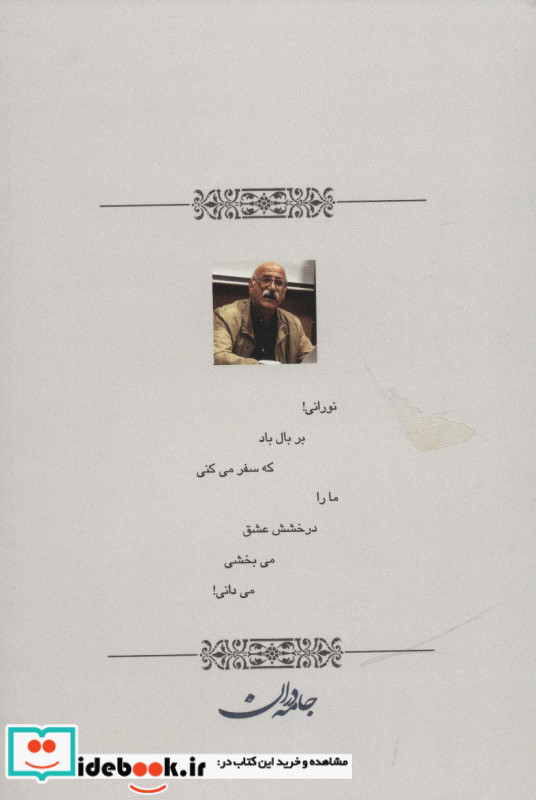 نورانی!
بر بال باد
که سفر می کنی
ما را
درخشش عشق
می بخشی
می دانی!
جامه‌دران
مشاهده و خرید این کتاب در:
idebook.ir